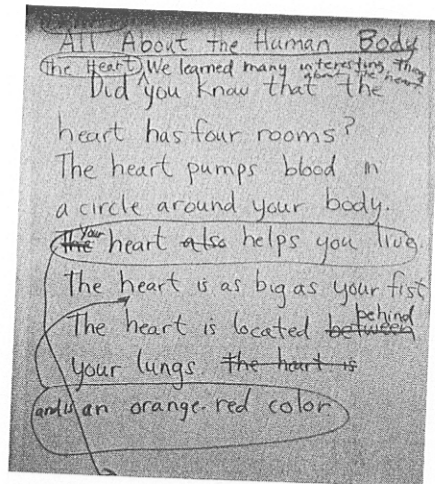 All About the Human Body
The Heart We learned many interesting things about the heart
Did you know that the
heart has four rooms?
The heart pumps blood in
a circle around your body.
the your heart also helps you live.
The heart is as big as your fist
The heart is located between behind
your lungs. the hart is
and is an orange-red color